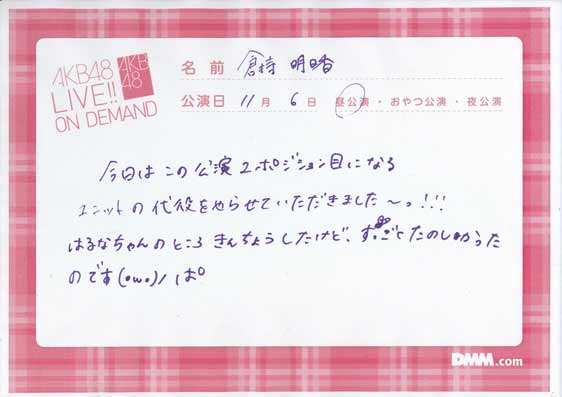 AKB48
LIVE!!
ON DEMAND
AKB
48
名前 倉持 明日香
公演日 11月 6日 昼公演・おやつ公演・夜公演
今日はこの公演2ポジション目になる
ユニットの代役をやらせていただきました〜っ!!!
はるなちゃんのところきんちょうしたけど、すっごくたのしかった
のです(・ω・)ノ ぱ
DMM.com